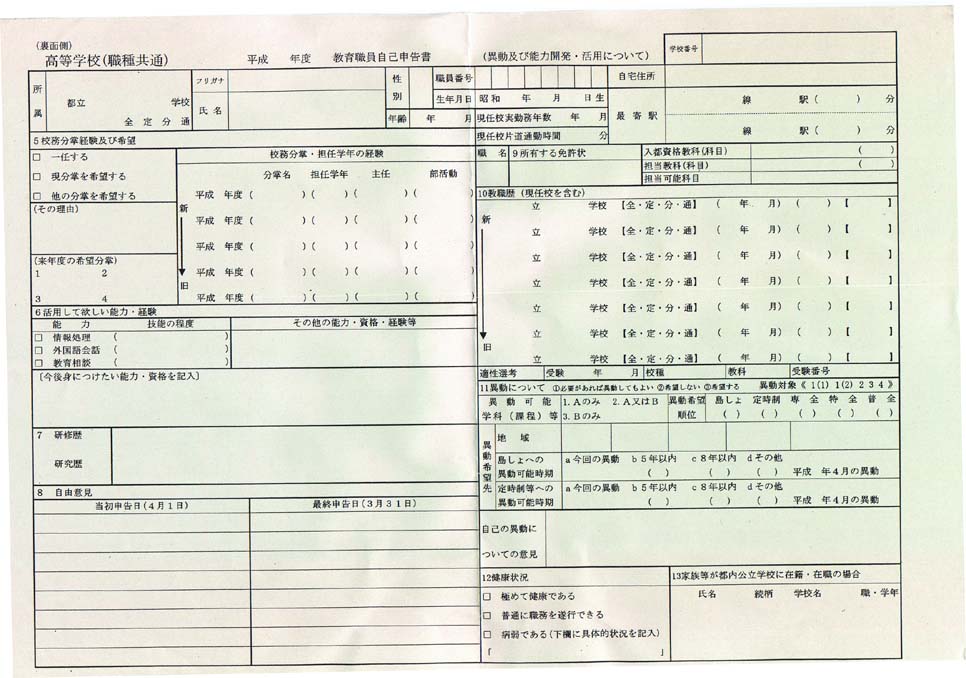 (裏面側)
高等学校(職種共通)　平成　年度　教育職員自己申告書　(異動及び能力開発・活用について)　学校番号
所属　都立　学校　全定分通
フリガナ　氏名　性別　年齢　年　月
職員番号　自宅住所
生年月日　昭和　年　月　日生
現任校実勤務年数　年　月
現任校片道通勤時間　分
最寄駅　線　駅(　)　分
線　駅(　)　分
5校務分掌経験及び希望
□　一任する
□　現分掌を希望する
□　他の分掌を希望する
(その理由)
(来年度の希望分掌)
1　2
3　4
校務分掌・担任学年の経験
分掌名　担任学年　主任　部活動
新
平成　年度(　)(　)(　)(　)
平成　年度(　)(　)(　)(　)
平成　年度(　)(　)(　)(　)
平成　年度(　)(　)(　)(　)
平成　年度(　)(　)(　)(　)
旧
6活用して欲しい能力・経験
能　力　技能の程度　その他の能力・資格・経験等
□　情報処理　(　)
□　外国語会話　(　)
□　教育相談　(　)
[今後身につけたい能力・資格を記入]
7　研修歴
研究歴
8　自由意見
当初申告日(4月1日)　最終申告日(3月31日)
職　名　9所有する免許状
入都資格教科(科目)　(　)
担当教科(科目)　(　)
担当可能科目
10教職歴(現任校を含む)
新
立　学校　【全・定・分・通】　(　年　月)　(　)　【　】
立　学校　【全・定・分・通】　(　年　月)　(　)　【　】
立　学校　【全・定・分・通】　(　年　月)　(　)　【　】
立　学校　【全・定・分・通】　(　年　月)　(　)　【　】
立　学校　【全・定・分・通】　(　年　月)　(　)　【　】
立　学校　【全・定・分・通】　(　年　月)　(　)　【　】
立　学校　【全・定・分・通】　(　年　月)　(　)　【　】
旧
適性選考　受験　年　月　校種　教科　受験番号
11異動について　①必要があれば異動してもよい　②希望しない　③希望する　異動対象《1(1)1(2)234》
異動可能　1.Aのみ　2.A又はB　異動希望　島しょ　定時制　専全　特全　普全
学科(課程)等　3.Bのみ　順位　(　)　(　)　(　)　(　)　(　)
異動希望先
地　域
島しょへの　a今回の異動　b5年以内　c8年以内　dその他
異動可能時期　(　)　(　)　平成　年4月の異動
定時制等への　a今回の異動　b5年以内　c8年以内　dその他
異動可能時期　(　)　(　)　平成　年4月の異動
自己の異動に
ついての意見
12健康状況
□　極めて健康である
□　普通に職務を遂行できる
□　病弱である(下欄に具体的状況を記入)
「　」
13家族等が都内公立学校に在籍・在職の場合
氏名　続柄　学校名　職・学年